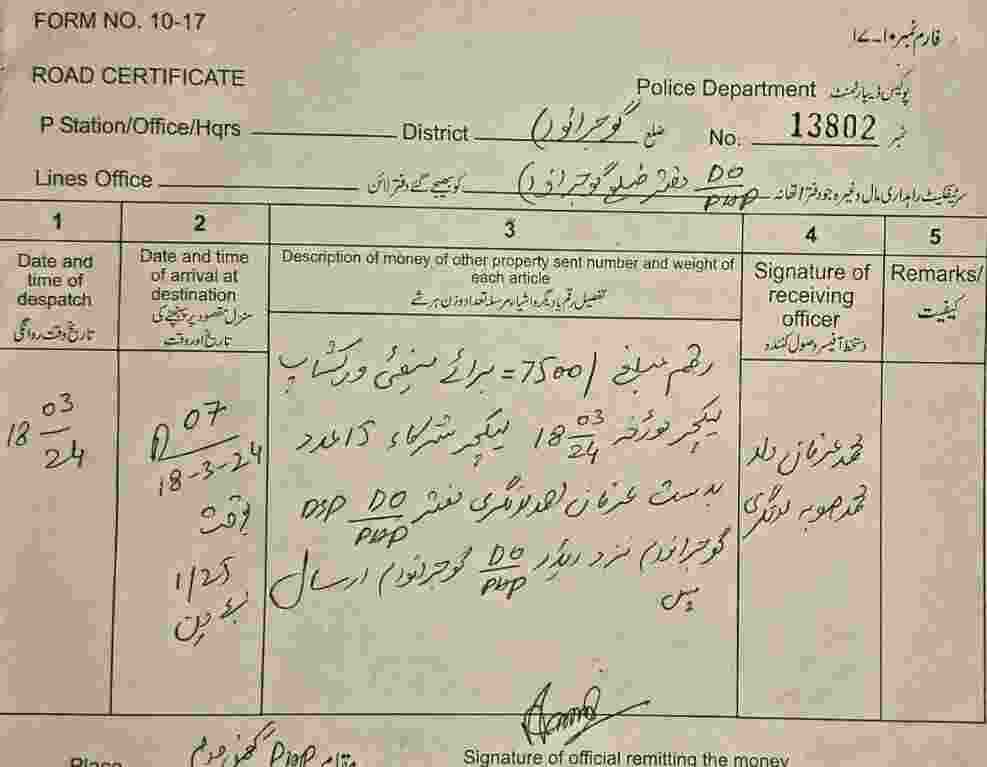 FORM NO. 10-17
فارم نمبر ۱۰-۱۷
ROAD CERTIFICATE
Police Department پولیس ڈیپارٹمنٹ
P Station/Office/Hqrs District گوجرانوالہ ضلع No. 13802 نمبر
Lines Office
سرٹیفکیٹ راہداری مال وغیرہ جو دفتر / تھانہ DO/PHP دفتر ضلع گوجرانوالہ کو بھیجے گئے دفتر لائن
1 2 3 4 5
Date and time of despatch
تاریخ وقت روانگی
Date and time of arrival at destination
منزل مقصود پر پہنچنے کی تاریخ اور وقت
Description of money of other property sent number and weight of each article
تفصیل رقم یا دیگر اشیاء مرسلہ تعداد وزن ہر شے
Signature of receiving officer
دستخط آفیسر وصول کنندہ
Remarks/
کیفیت
18 03/24
07
18-3-24
بوقت
1/25
بجے دن
رقم مبلغ /7500= برائے ورکشاپ
لیکچر مورخہ 18 03/24 لیکچر شرکاء 15 عدد
بدست عرفان لانگری دفتر DSP DO/PHP
گوجرانوالہ نزد ریڈر DO/PHP گوجرانوالہ ارسال
ہیں
محمد عرفان
محمد لانگری
Place PHP مقام
Signature of official remitting the money